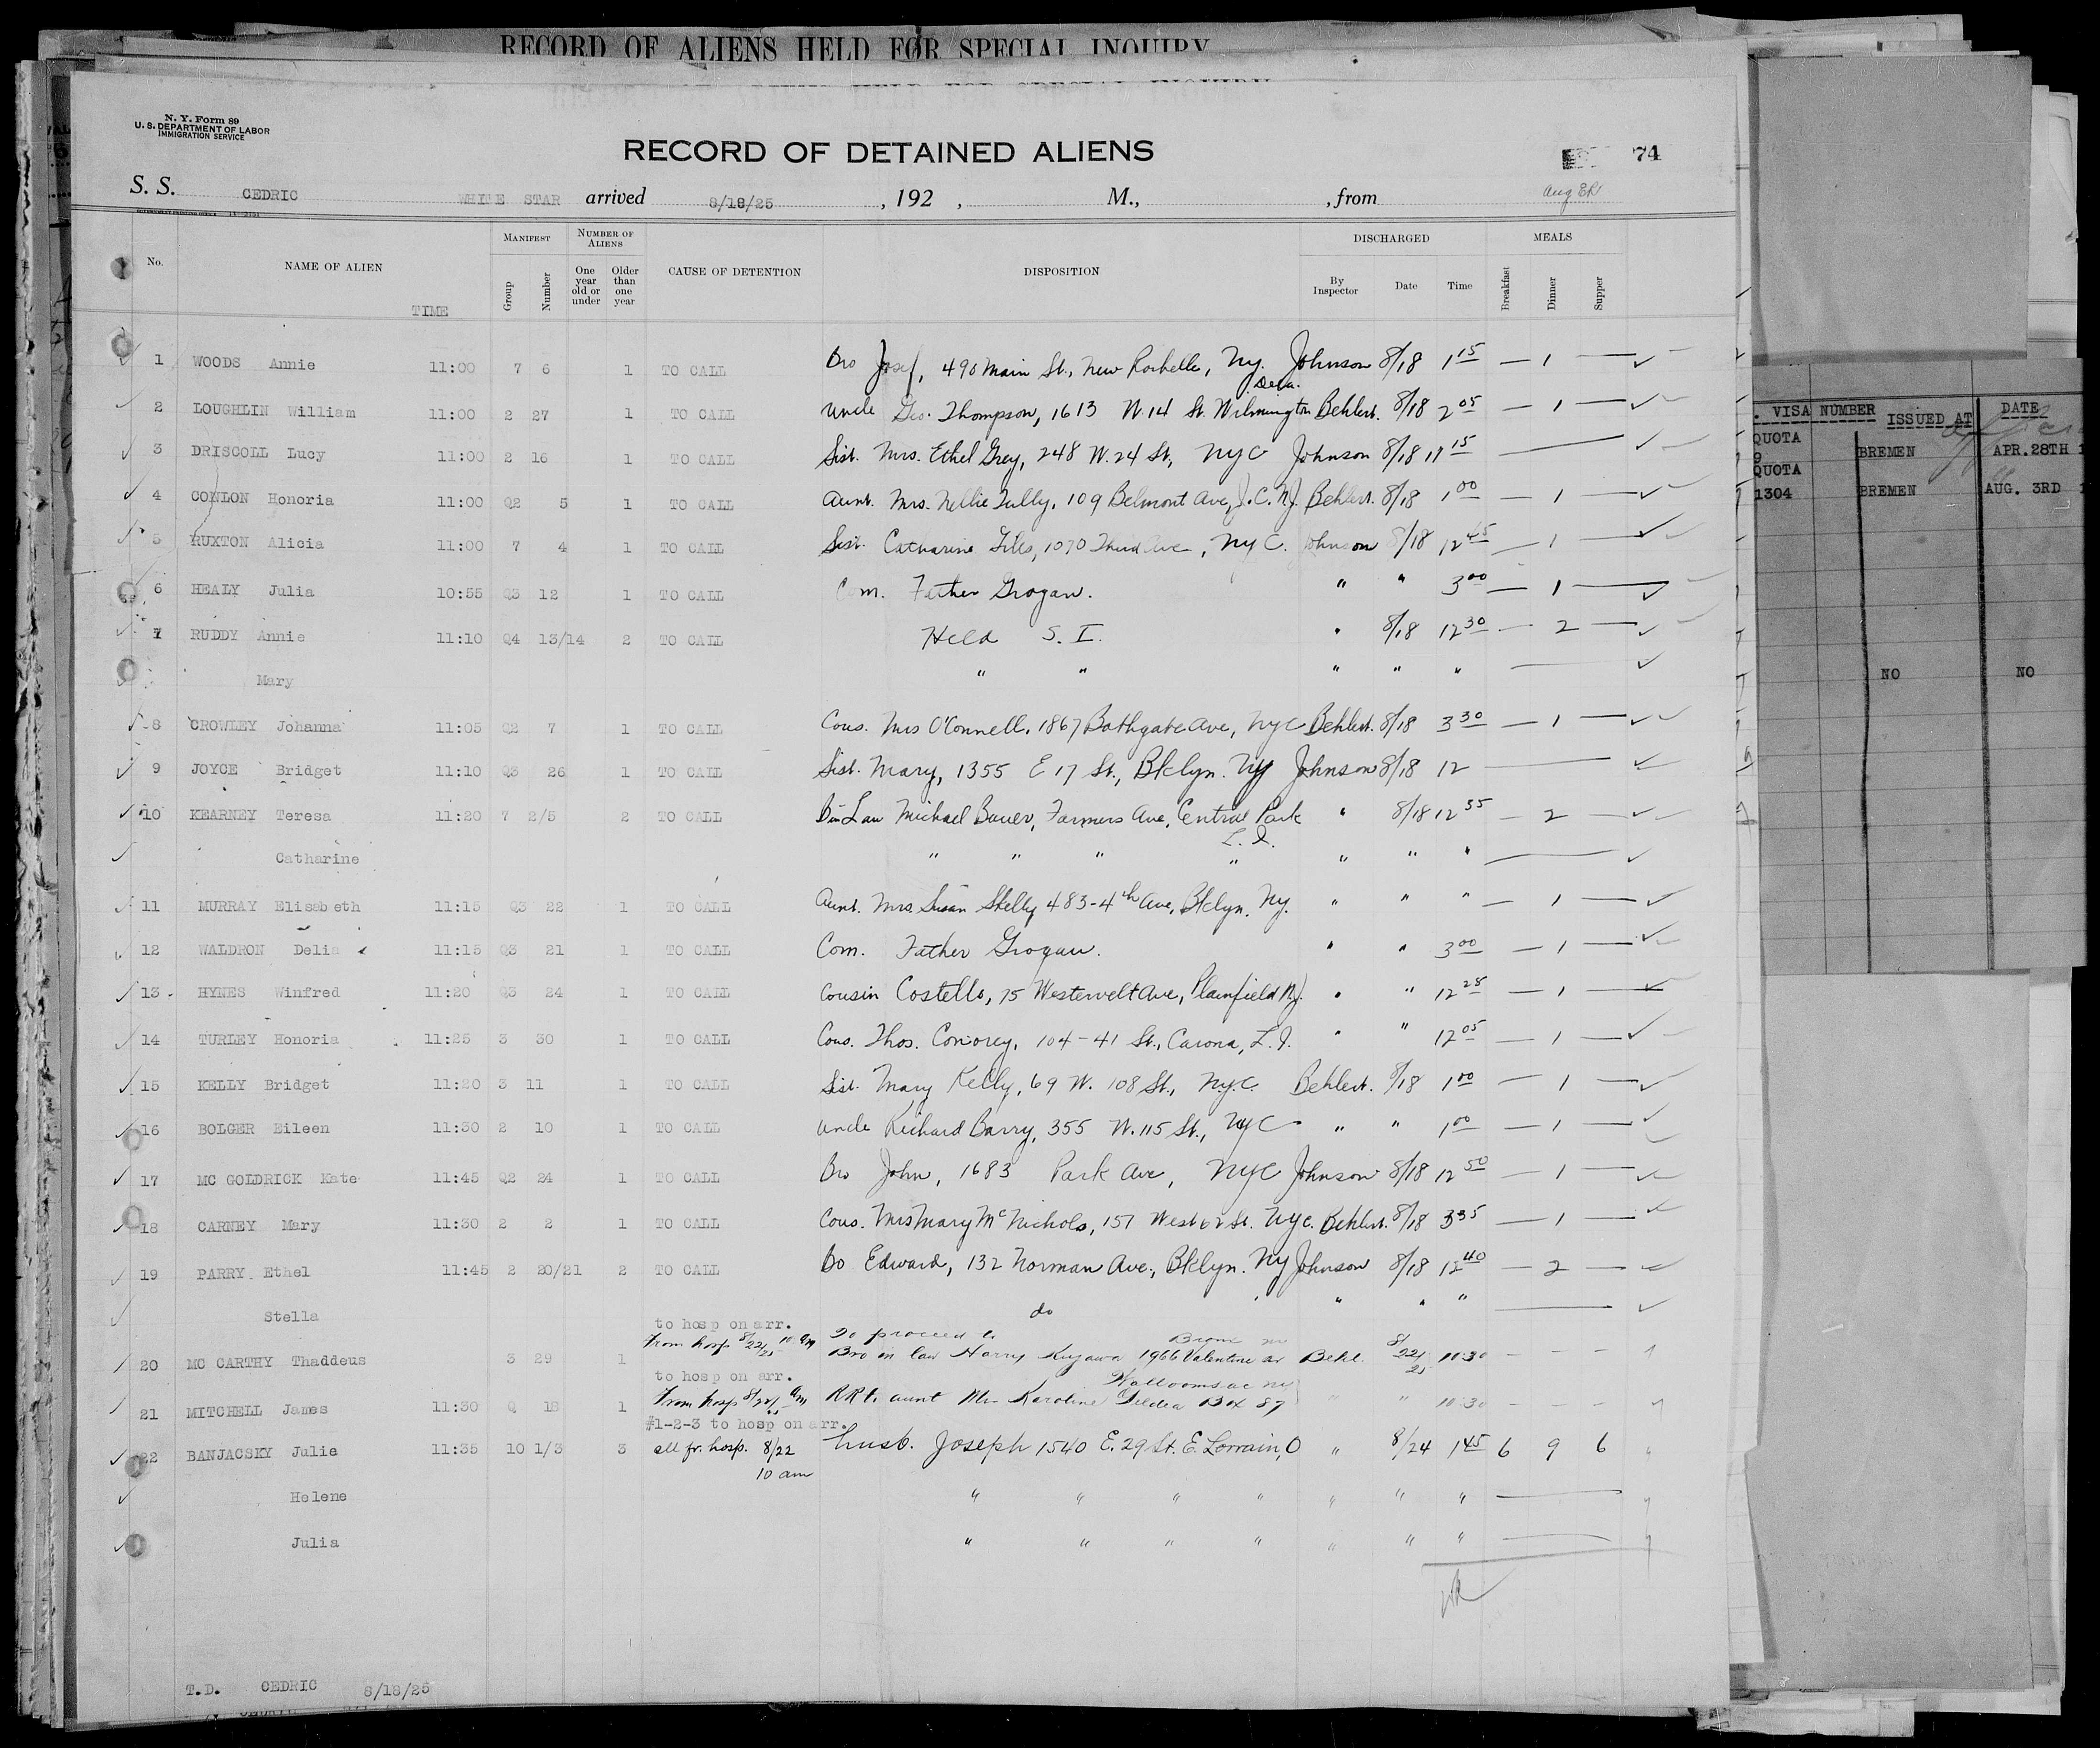 RECORD OF ALIENS HELD FOR SPECIAL INQUIRY
N. Y. Form 89
U. S. DEPARTMENT OF LABOR
IMMIGRATION SERVICE
RECORD OF DETAINED ALIENS
74
S. S. CEDRIC WHITE STAR arrived 8/18/25, 192 , M., , from
No. NAME OF ALIEN TIME MANIFEST Group Number NUMBER OF ALIENS One year old or under Older than one year CAUSE OF DETENTION DISPOSITION DISCHARGED By Inspector Date Time MEALS Breakfast Dinner Supper
1 WOODS Annie 11:00 7 6 1 TO CALL Bro Josef, 490 Main St., New Rochelle, Ny. Johnson 8/18 1 15 — 1 —
Dela.
2 LOUGHLIN William 11:00 2 27 1 TO CALL Uncle Geo. Thompson, 1613 W 14 St. Wilmington Behlert. 8/18 2 05 — 1 —
3 DRISCOLL Lucy 11:00 2 16 1 TO CALL Sist. Mrs. Ethel Grey, 248 W. 24 St., NyC Johnson 8/18 11 15 —
4 CONLON Honoria 11:00 Q2 5 1 TO CALL Aunt. Mrs. Nellie Tully, 109 Belmont Ave, J.C. N.J. Behlert. 8/18 1 00 — 1 —
5 RUXTON Alicia 11:00 7 4 1 TO CALL Sist. Catharine Giles, 1070 Third Ave, NyC. Johnson 8/18 12 45 — 1 —
6 HEALY Julia 10:55 Q3 12 1 TO CALL Com. Father Grogan. " " 3 00 — 1 —
7 RUDDY Annie 11:10 Q4 13/14 2 TO CALL Held S. I. " 8/18 12 30 — 2 —
Mary " " " " " —
8 CROWLEY Johanna 11:05 Q2 7 1 TO CALL Cous. Mrs O'Connell, 1867 Bathgate Ave, NyC Behlert. 8/18 3 30 — 1 —
9 JOYCE Bridget 11:10 Q3 26 1 TO CALL Sist. Mary, 1355 E 17 St., Bklyn. Ny Johnson 8/18 12 —
10 KEARNEY Teresa 11:20 7 2/5 2 TO CALL B in Law Michael Bauer, Farmers Ave, Central Park " 8/18 12 35 — 2 —
L. I.
Catharine " " " " " " " —
11 MURRAY Elisabeth 11:15 Q3 22 1 TO CALL Aunt. Mrs. Susan Skelly 483-4th Ave, Bklyn. Ny. " " " — 1 —
12 WALDRON Delia 11:15 Q3 21 1 TO CALL Com. Father Grogan. " " 3 00 — 1 —
13 HYNES Winfred 11:20 Q3 24 1 TO CALL Cousin Costello, 75 Westervelt Ave, Plainfield N.J. " " 12 25 — 1 —
14 TURLEY Honoria 11:25 3 30 1 TO CALL Cous. Thos. Conorey, 104-41 St., Carona, L. I. " " 12 05 — 1 —
15 KELLY Bridget 11:20 3 11 1 TO CALL Sist. Mary Kelly, 69 W. 108 St., Ny.C. Behlert. 8/18 1 00 — 1 —
16 BOLGER Eileen 11:30 2 10 1 TO CALL Uncle Richard Barry, 355 W. 115 St., NyC " " 1 00 — 1 —
17 MC GOLDRICK Kate 11:45 Q2 24 1 TO CALL Bro John, 1683 Park Ave, NyC Johnson 8/18 12 50 — 1 —
18 CARNEY Mary 11:30 2 2 1 TO CALL Cous. Mrs Mary McNichols, 157 West 62 St. Nyc. Behlert. 8/18 3 35 — 1 —
19 PARRY Ethel 11:45 2 20/21 2 TO CALL Bo Edward, 132 Norman Ave., Bklyn. Ny Johnson 8/18 12 40 — 2 —
Stella do " " " —
to hosp on arr.
from hosp 8/22/25 10 am To proceed to Bronx
20 MC CARTHY Thaddeus 3 29 1 Bro in law Harry Kuzawa 1966 Valentine av Behl. 8/22/25 10:30 - - -
to hosp on arr.
from hosp Walloomsac ny
21 MITCHELL James 11:30 Q 18 1 RRt. aunt Mrs Karoline Box 87 " " 10:30 - - -
#1-2-3 to hosp on arr.
22 BANJACSKY Julia 11:35 10 1/3 3 all fr. hosp. 8/22 husb. Joseph 1540 E. 29 St. E. Lorrain, O " 8/24 1 45 6 9 6
10 am
Helene " " " " " " " —
Julia " " " " " " " —
T.D. CEDRIC 8/18/25
VISA NUMBER ISSUED AT DATE
QUOTA BREMEN APR. 28TH
9
QUOTA
1304 BREMEN AUG. 3RD
NO NO